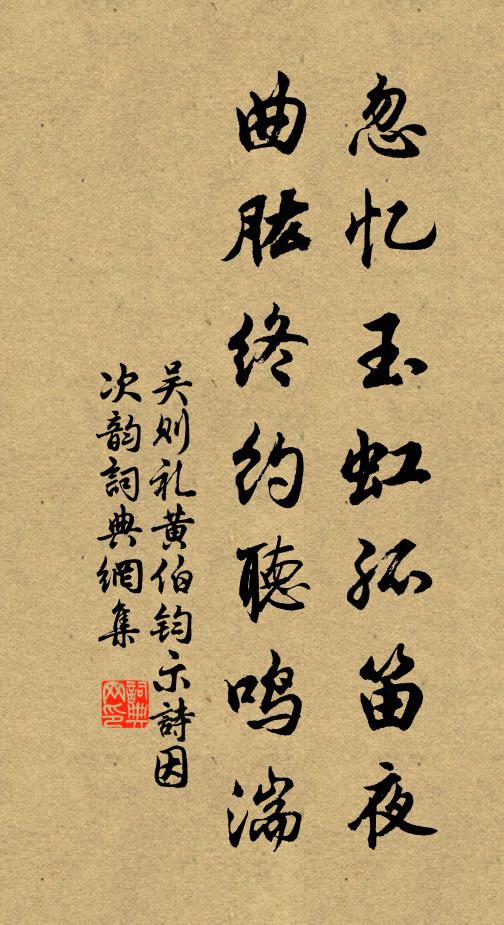 忽忆玉虹孤笛夜
曲肱终约聴鸣湍
吴则礼黄伯钧示詩因
次韵詞典網集
詞典网印